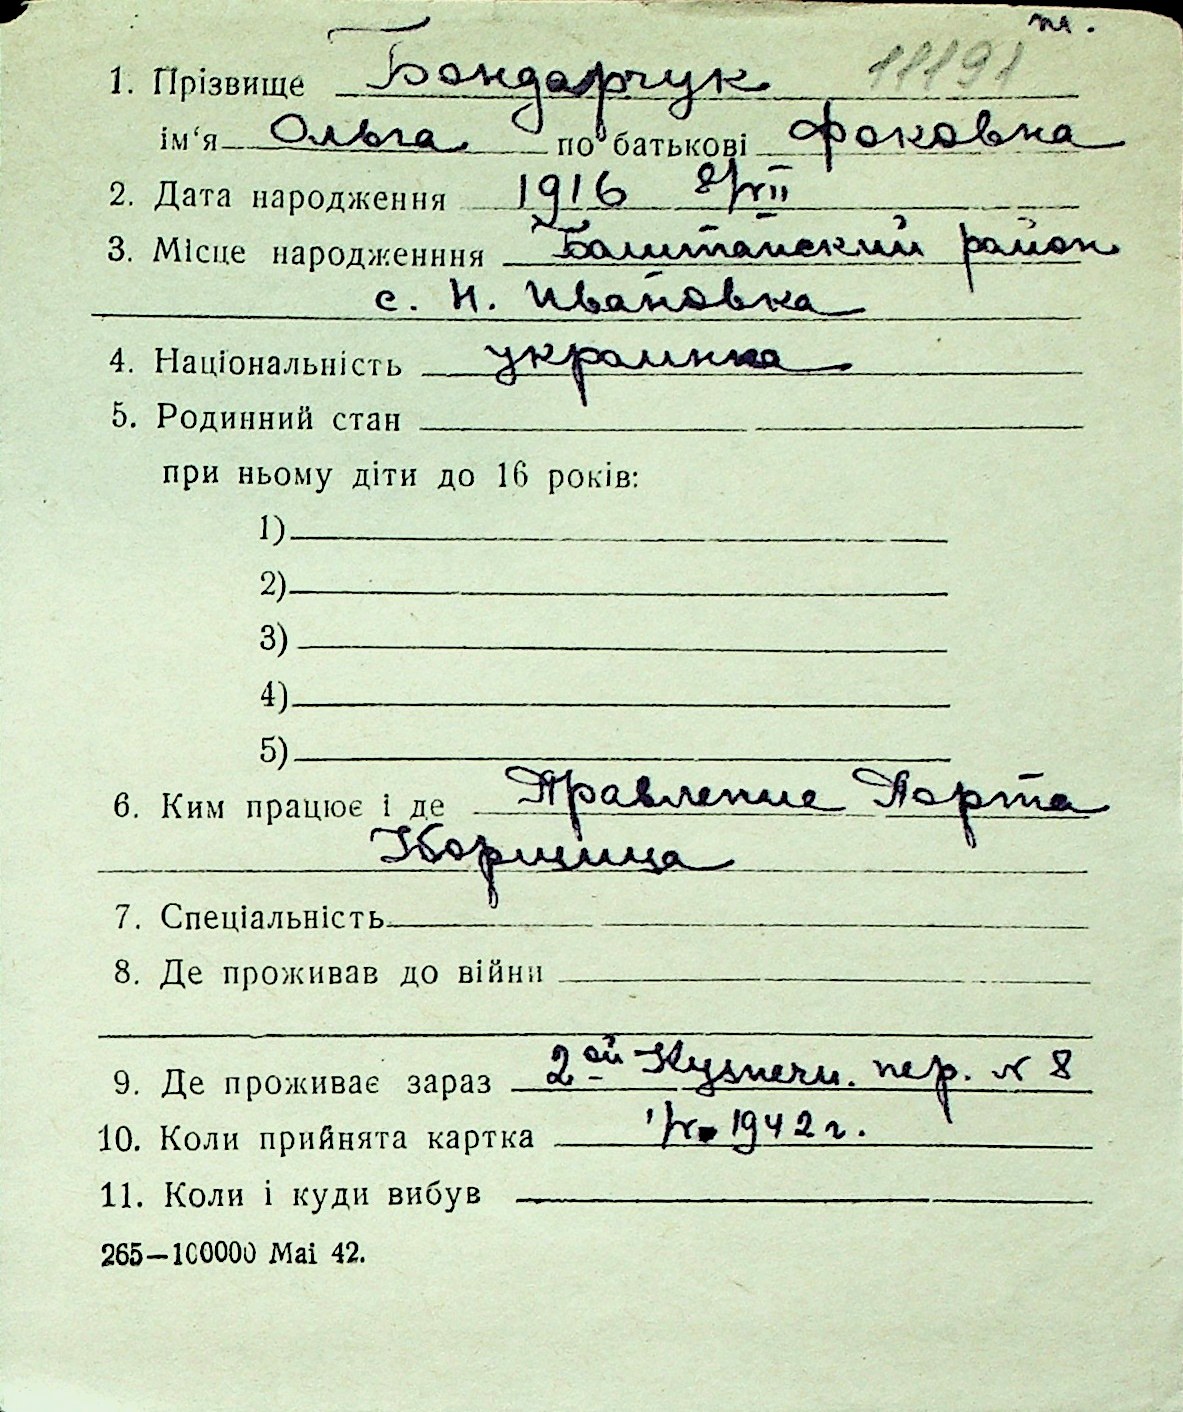 11191
1. Прізвище Бондарчук
ім‘я Ольга по батькові Фоковна
2. Дата народження 1916 8/VII
3. Місце народженння Баштанский район
с. Н. Ивановка
4. Національність украинка
5. Родинний стан
при ньому діти до 16 років:
1)
2)
3)
4)
5)
6. Ким працює і де Правление Порта
Уборщица
7. Спеціальність
8. Де проживав до війни
9. Де проживає зараз 2ой Кузнечн. пер. № 8
10. Коли прийнята картка 1942 г.
11. Коли і куди вибув
265—100000 Mai 42.